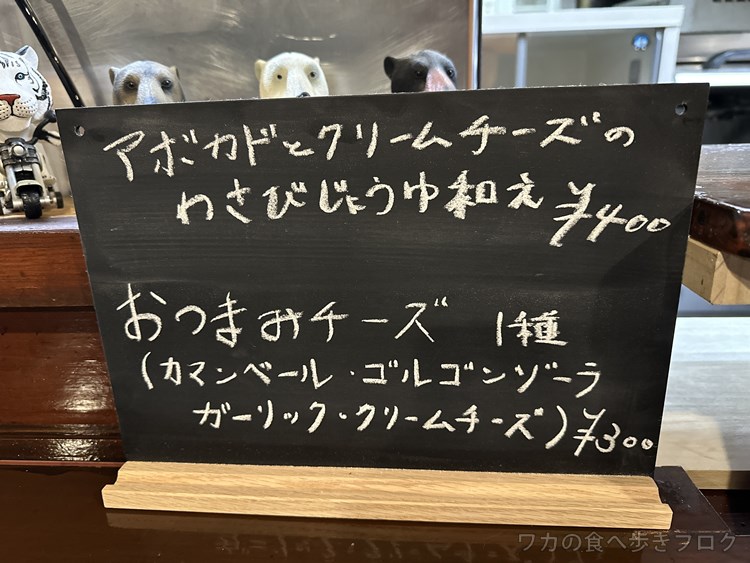 アボカドとクリームチーズの
わさびじょうゆ和え ¥400
おつまみチーズ 1種
(カマンベール・ゴルゴンゾーラ
ガーリック・クリームチーズ) ¥300
ワカの食べ歩きブログ